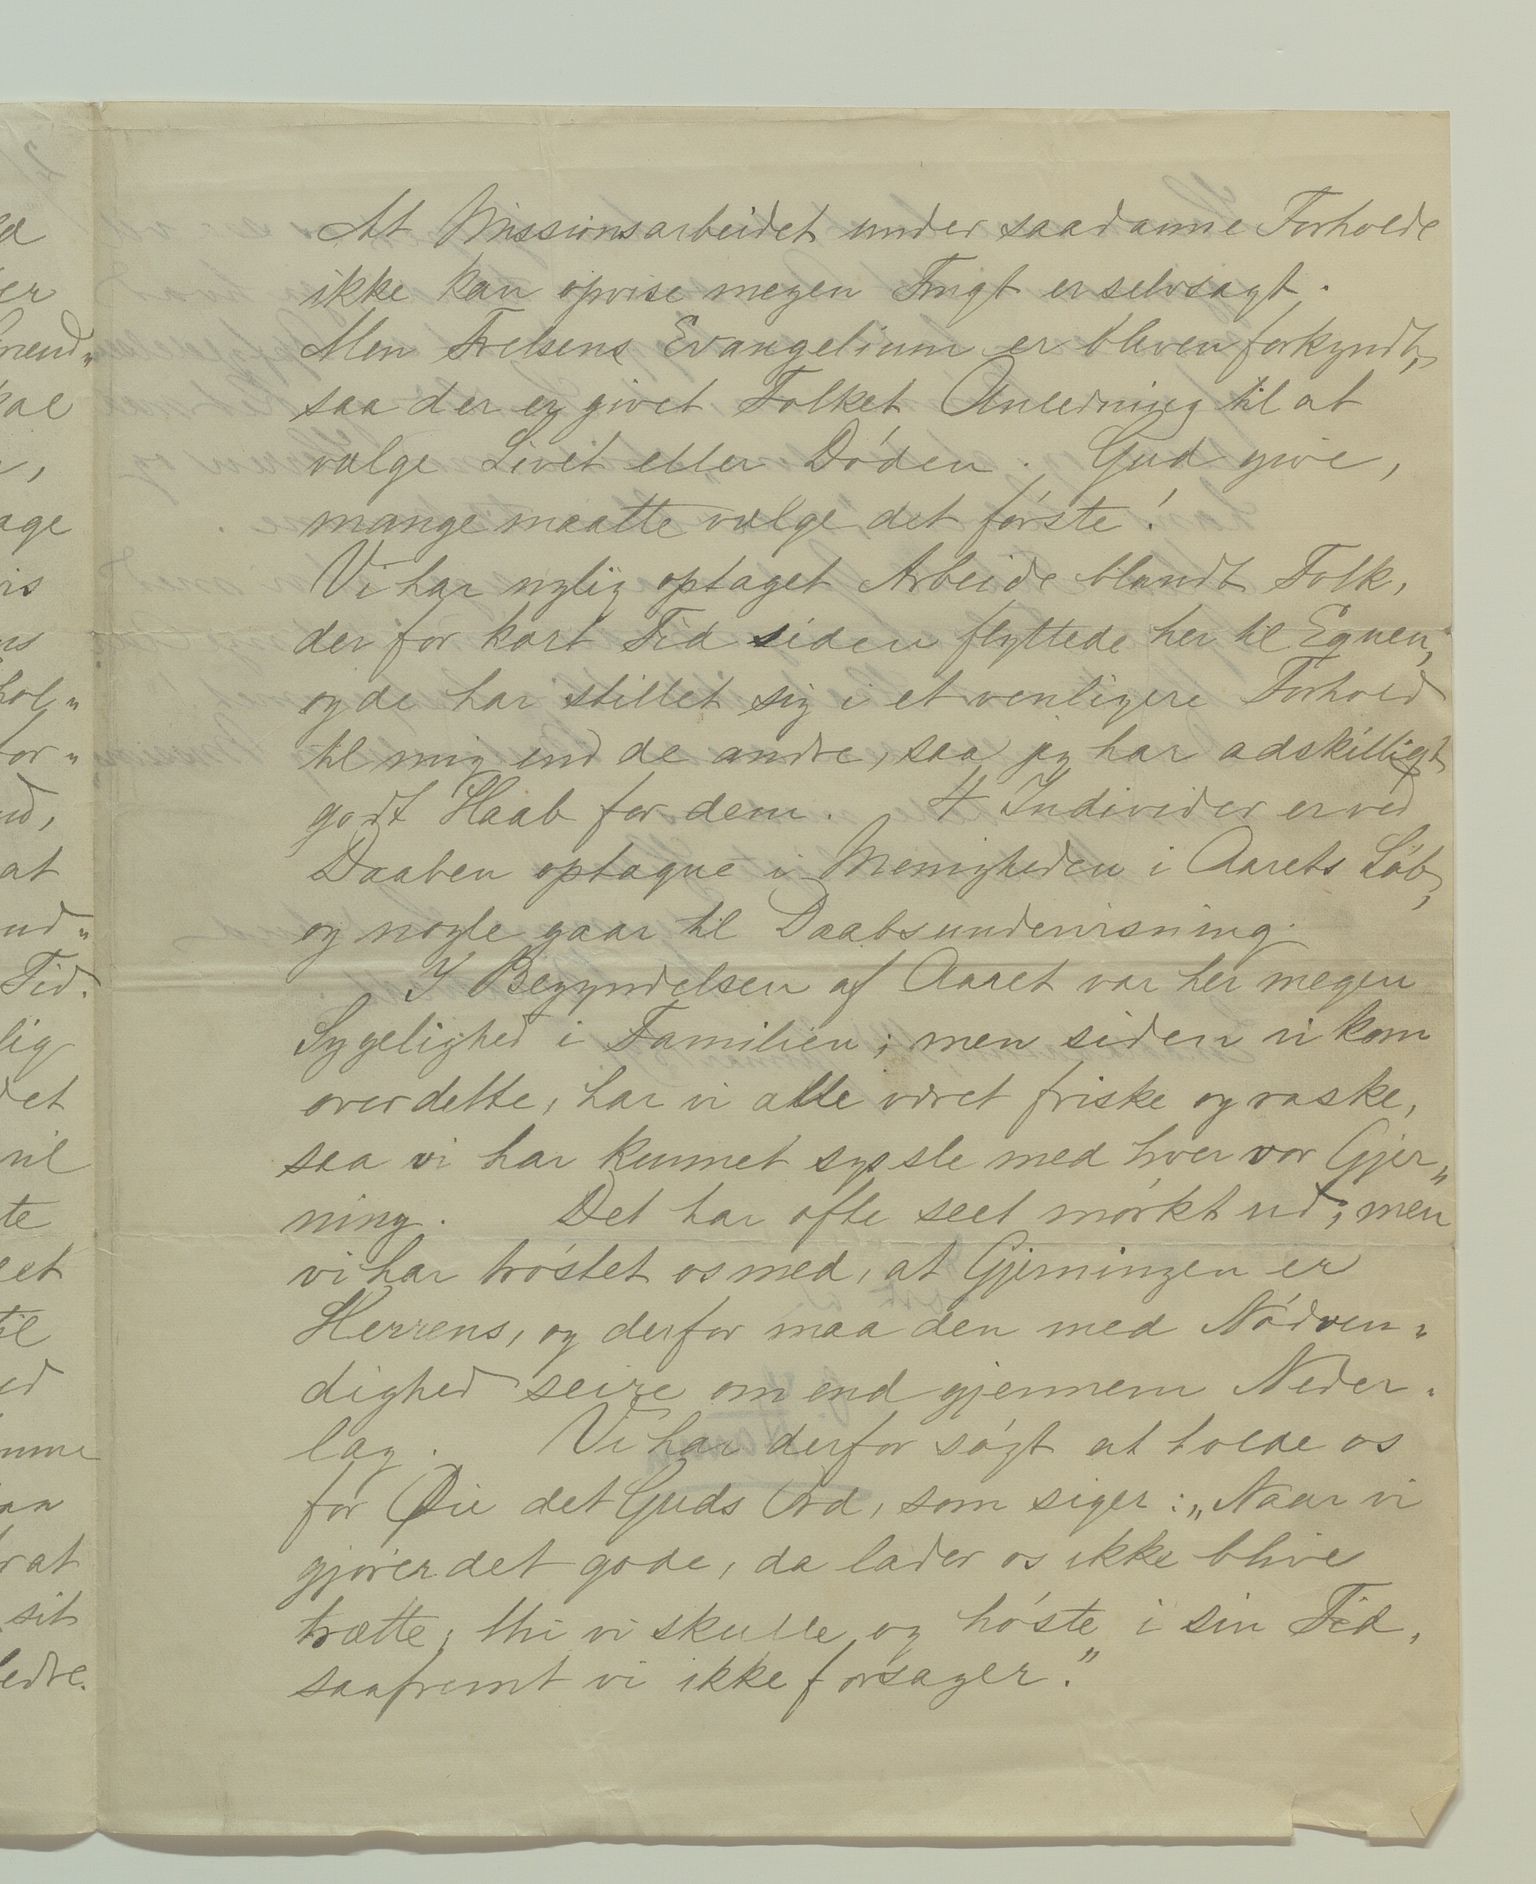 At Missionsarbeidet under saadanne Forholde
ikke kan opvise megen Frugt er selvsagt.
Men Frelsens Evangelium er bleven forkyndt,
saa der er givet Folket Anledning til at
vælge Livet eller Døden. Gud give,
mange maatte vælge det første!
Vi har nylig optaget Arbeide blandt Folk,
der for kort Tid siden flyttede her til Egnen,
og de har stillet sig i et venligere Forhold
til mig end de andre, saa jeg har adskilligt
godt Haab for dem. 4 Individer er ved
Daaben optagne i Menigheden i Aarets Løb,
og nogle gaar til Daabsundervisning.
I Begyndelsen af Aaret var her megen
Sygelighed i Familien; men siden vi kom
over dette, har vi alle været friske og raske,
saa vi har kunnet sysle med hver vor Gjer„
ning. Det har ofte seet mørkt ud; men
vi har trøstet os med, at Gjerningen er
Herrens, og derfor maa den med Nødven„
dighed seire om end gjennem Neder„
lag. Vi har derfor søgt at holde os
for Øie det Guds Ord, som siger: „Naar vi
gjører det gode, da lader os ikke blive
trætte; thi vi skulle og høste i sin Tid,
saafremt vi ikke forsager."